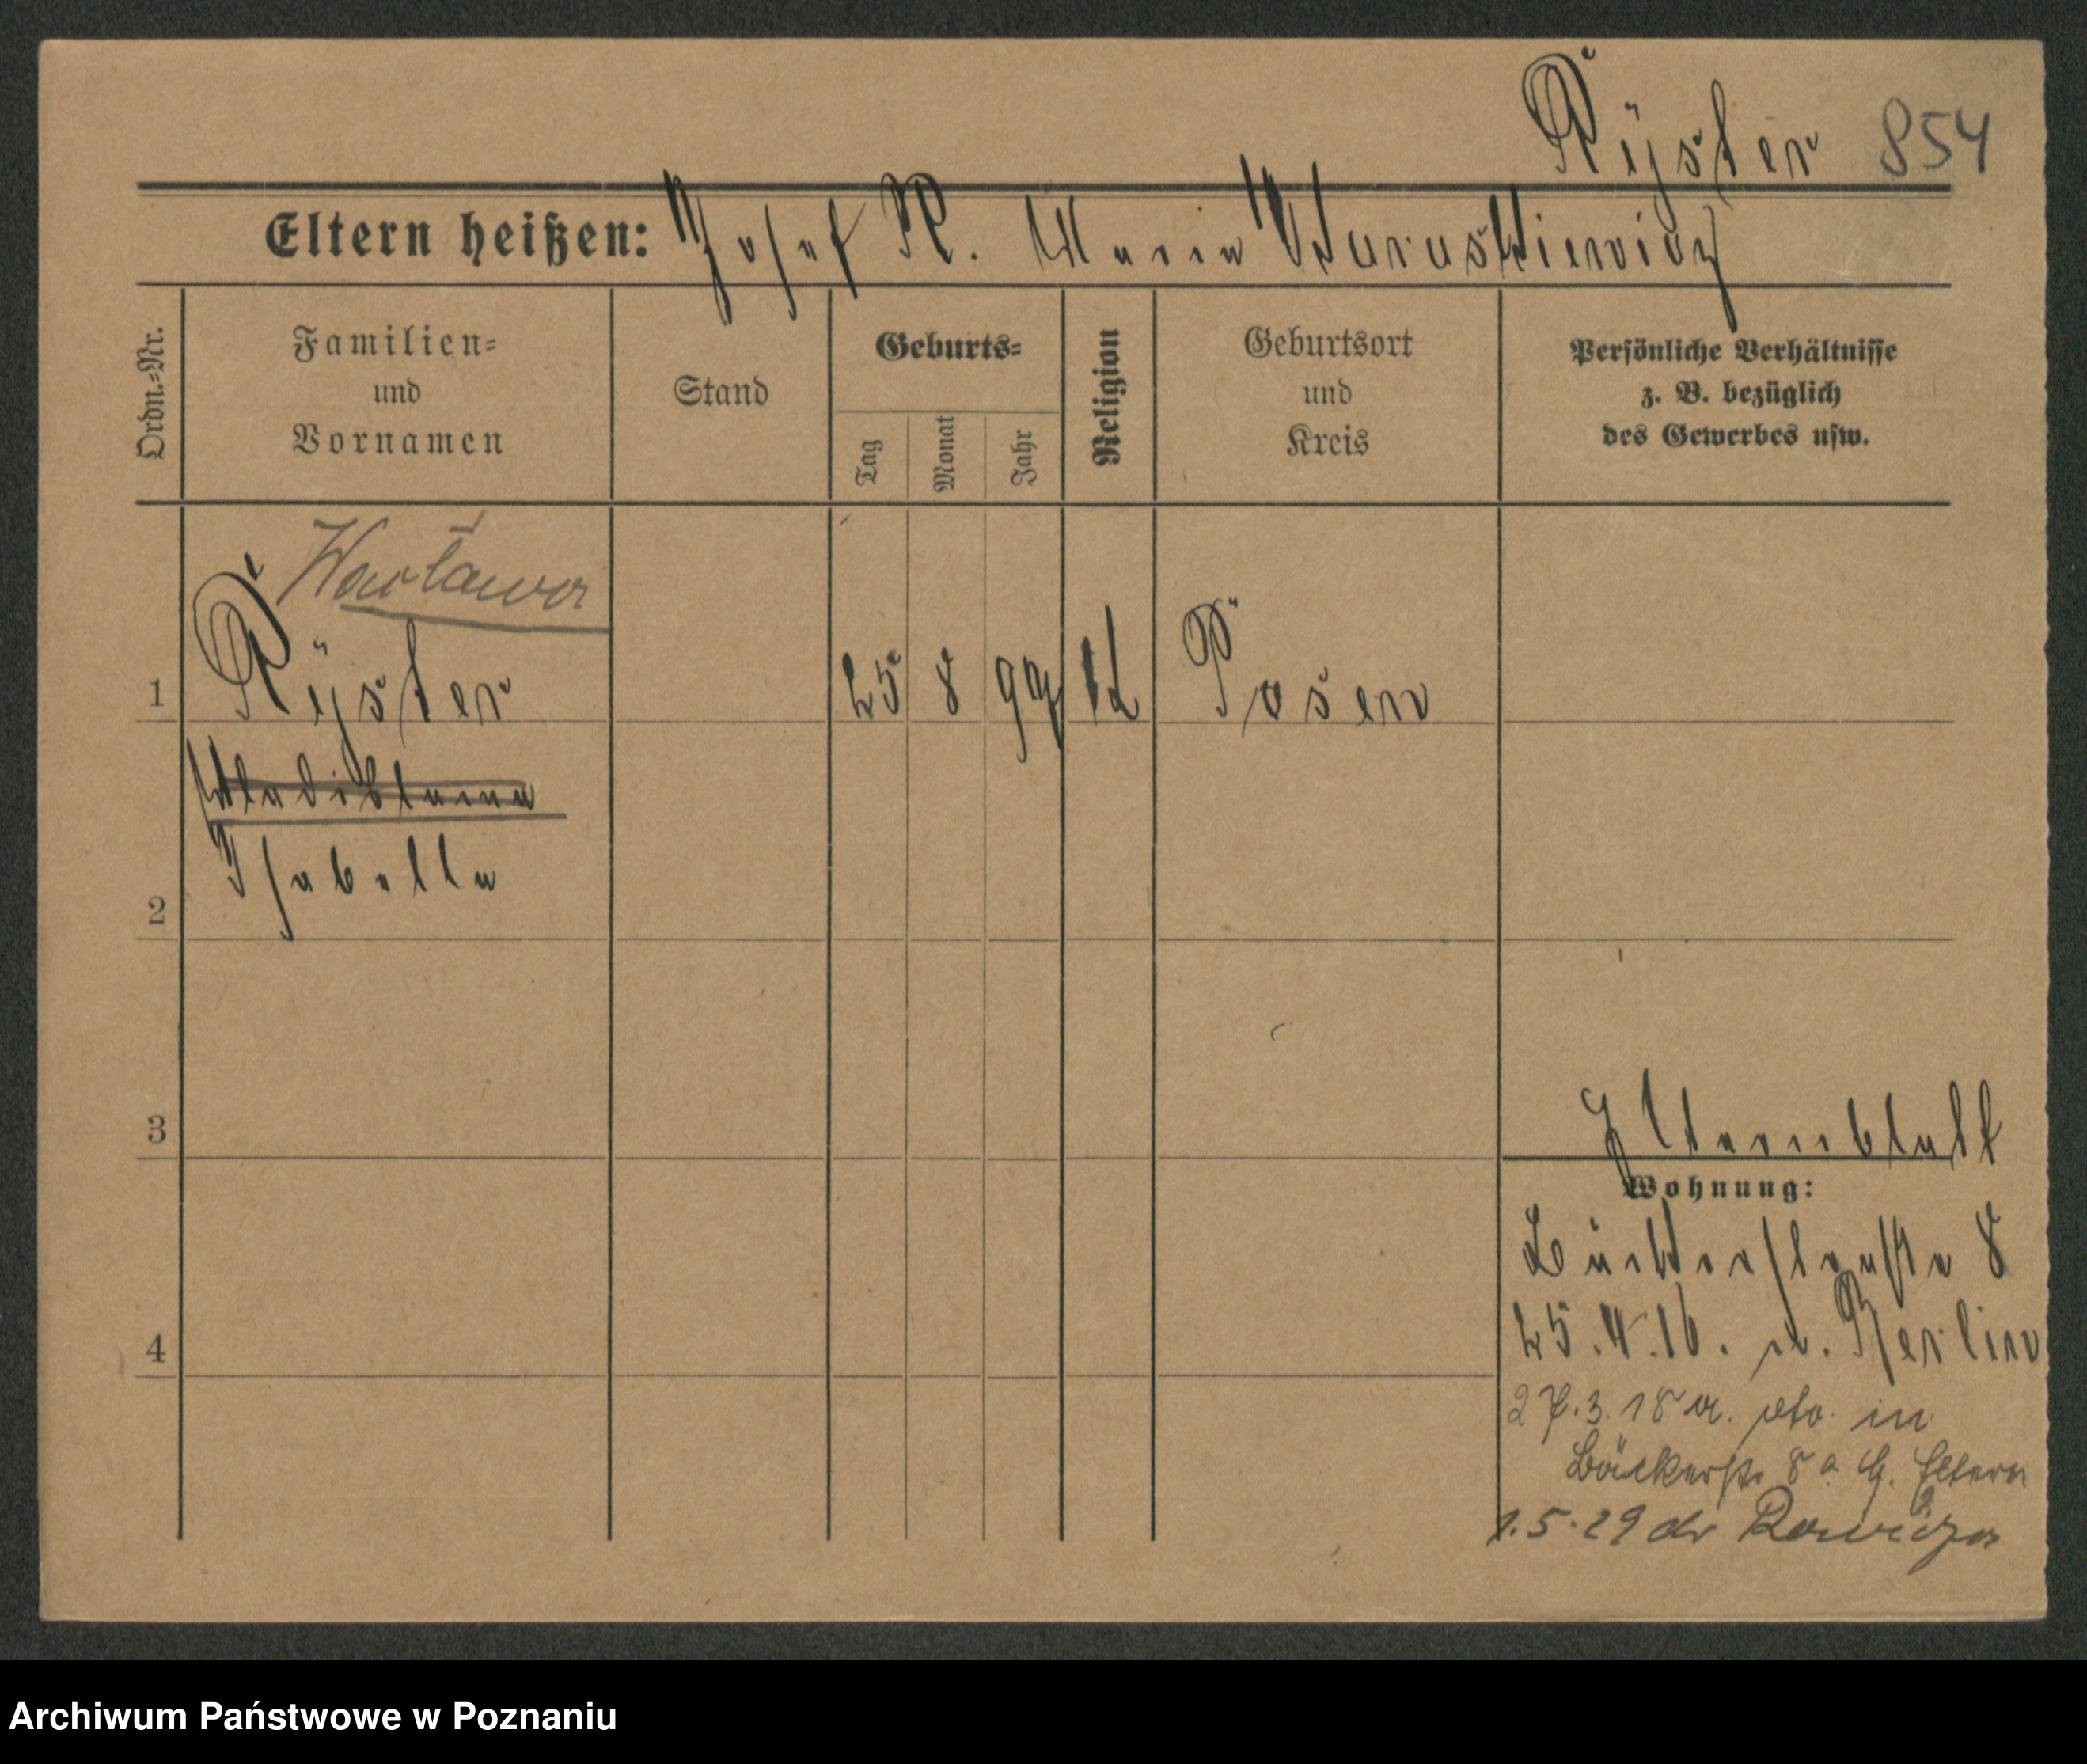 Rÿster 854
Eltern heißen: Josef R. Maria Staruskiewicz
Ordn.=Nr.
Familien=
und
Vornamen
Stand
Geburts=
Tag
Monat
Jahr
Religion
Geburtsort
und
Kreis
Persönliche Verhältnisse
z. B. bezüglich
des Gewerbes usw.
Wacława
1 Rÿster 25 8 99 Posen
Wladislawa
Isabella
2
3
Wohnung:
Bäckerstraße 8
25.4.16. n. Berlin
4
27.3.18 v. dto. in
Bäckerstr. 8 a G. Eltern
1.5.29 do Rawicza
Archiwum Państwowe w Poznaniu